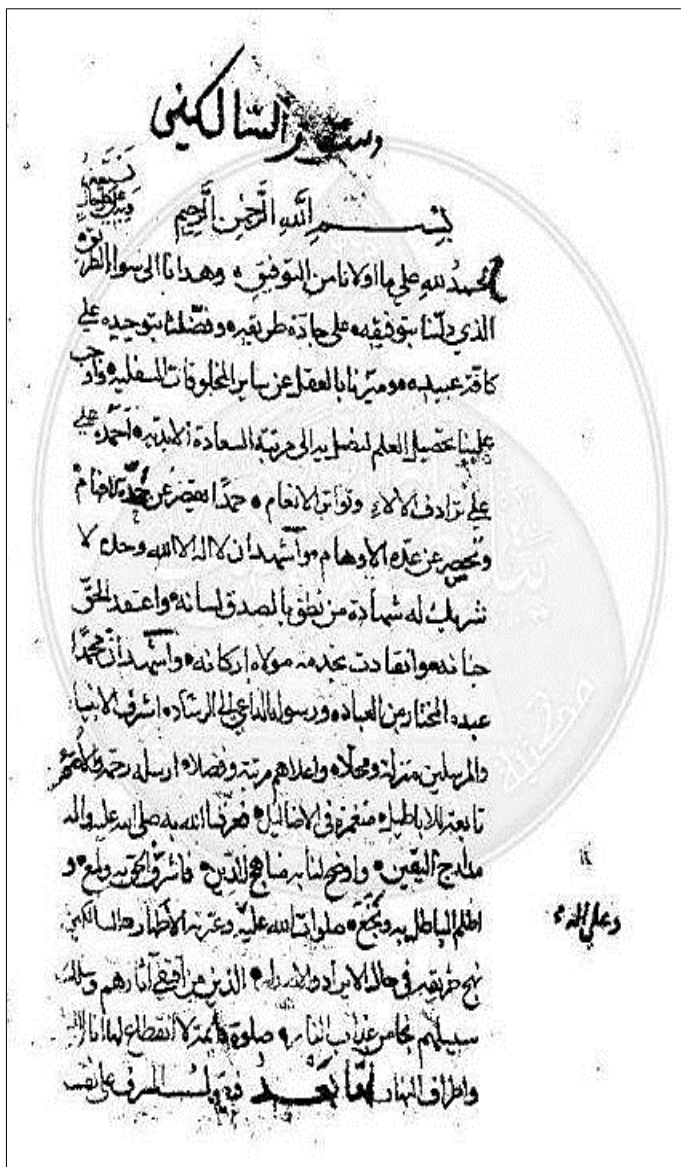 دستور السالكين
بسم الله الرحمن الرحيم
الحمد لله علي ما اولانا من التوفيق وهدانا الى سواء الطريق
الذي دلنا بتوفيقه على جادة طريقه وفضلنا بتوحيده علي
كافة عبيده وميزنا بالعقل عن ساير المخلوقات السفلية واوجب
علينا تحصيل العلم لنصل به الى مرتبة السعادة الابدية احمده
علي ترادف الالاء وتواتر الانعام حمدا يقصر عن
وتحصر عن عده الاوهام واشهد ان لا اله الا الله وحده لا
شريك له شهادة من نطق بالصدق لسانه واعتقد الحق
جنانه وانقادت بخدمة مولاه اركانه واشهد ان محمدا
عبده المختار من العباد ورسوله الداعي الى الرشاد اشرف الانبياء
والمرسلين منزلة ومحلا واعلاهم مرتبة وفضلا ارسله رحمة والامم
تابعة للاباطيل منغمرة في الاضاليل فعرفنا الله به صلى الله عليه واله
مدارج اليقين واوضح لنا به مناهج الدين فاشرق الحق به ولمع و
اظلم الباطل به صلوات الله عليه وعترته الاطهار السالكين
نهج طريقه في حالة الايراد والاصدار الذين من اقتفى آثارهم وسلك
سبيلهم نجا من عذاب النار صلوة دائمة لا انقطاع لها اناء
واطراف النهار اما بعد المسرف على نفسه
وعلى اله